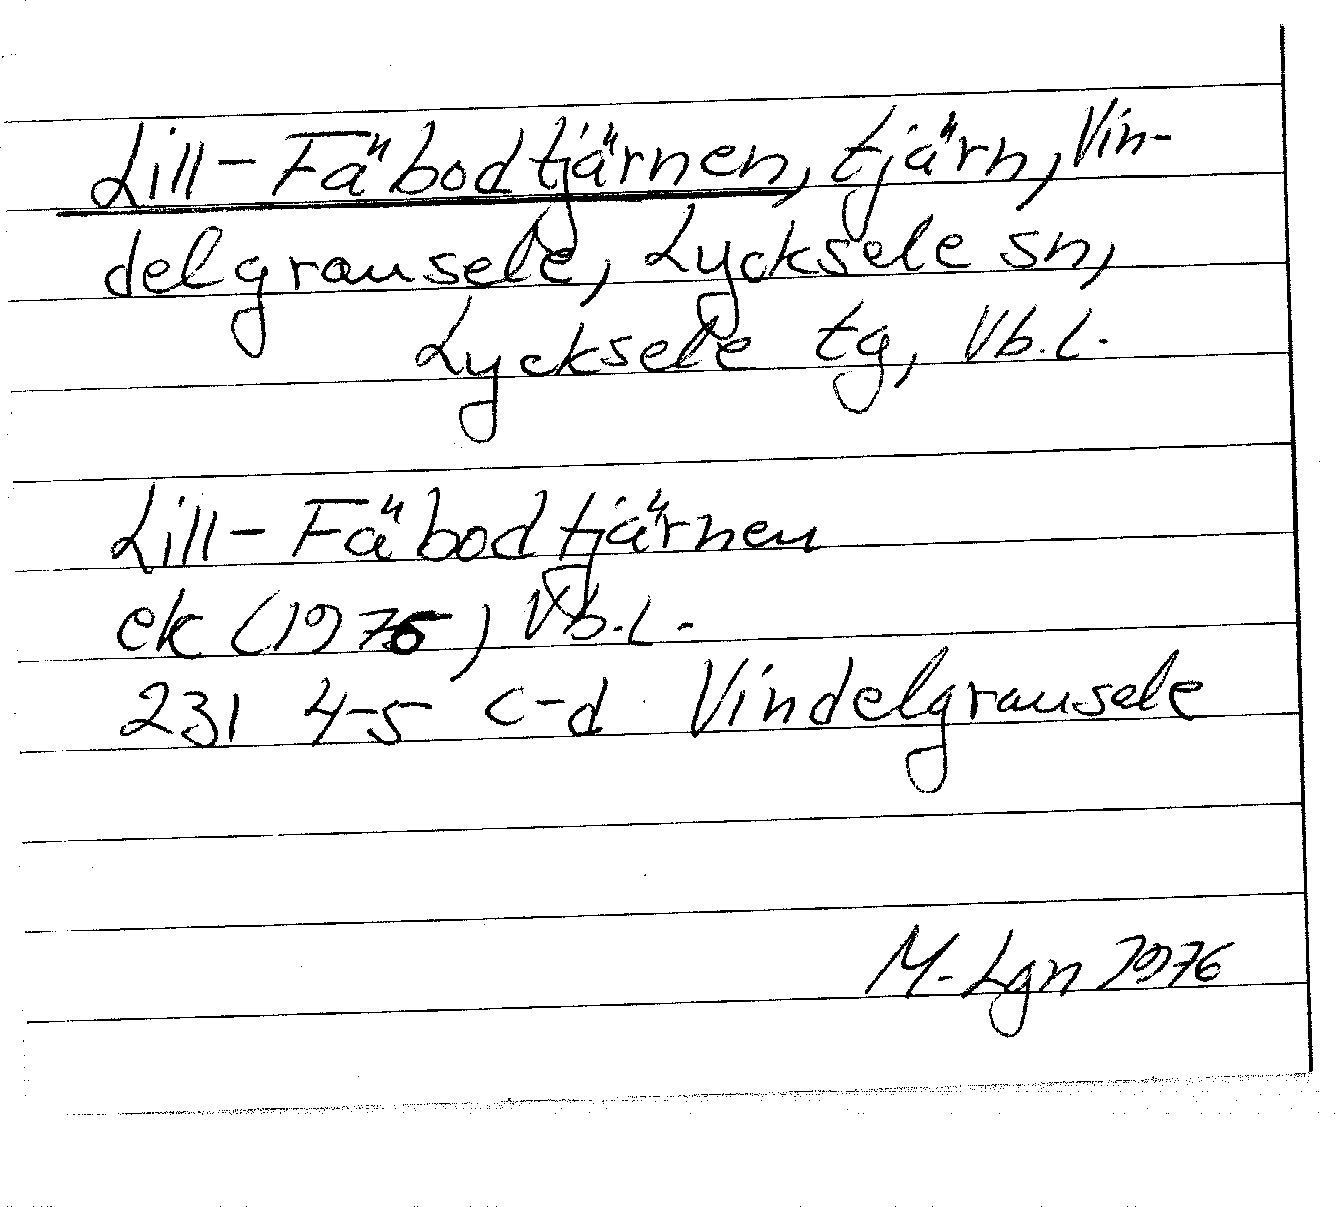 Lill-Fäbodtjärnen, tjärn, Vin-
delgransele, Lycksele sn,
Lycksele tg, Vb.l.
Lill-Fäbodtjärnen
ek (1976) Vb.l.
231 4-5 c-d Vindelgransele
M-Lgn 1976